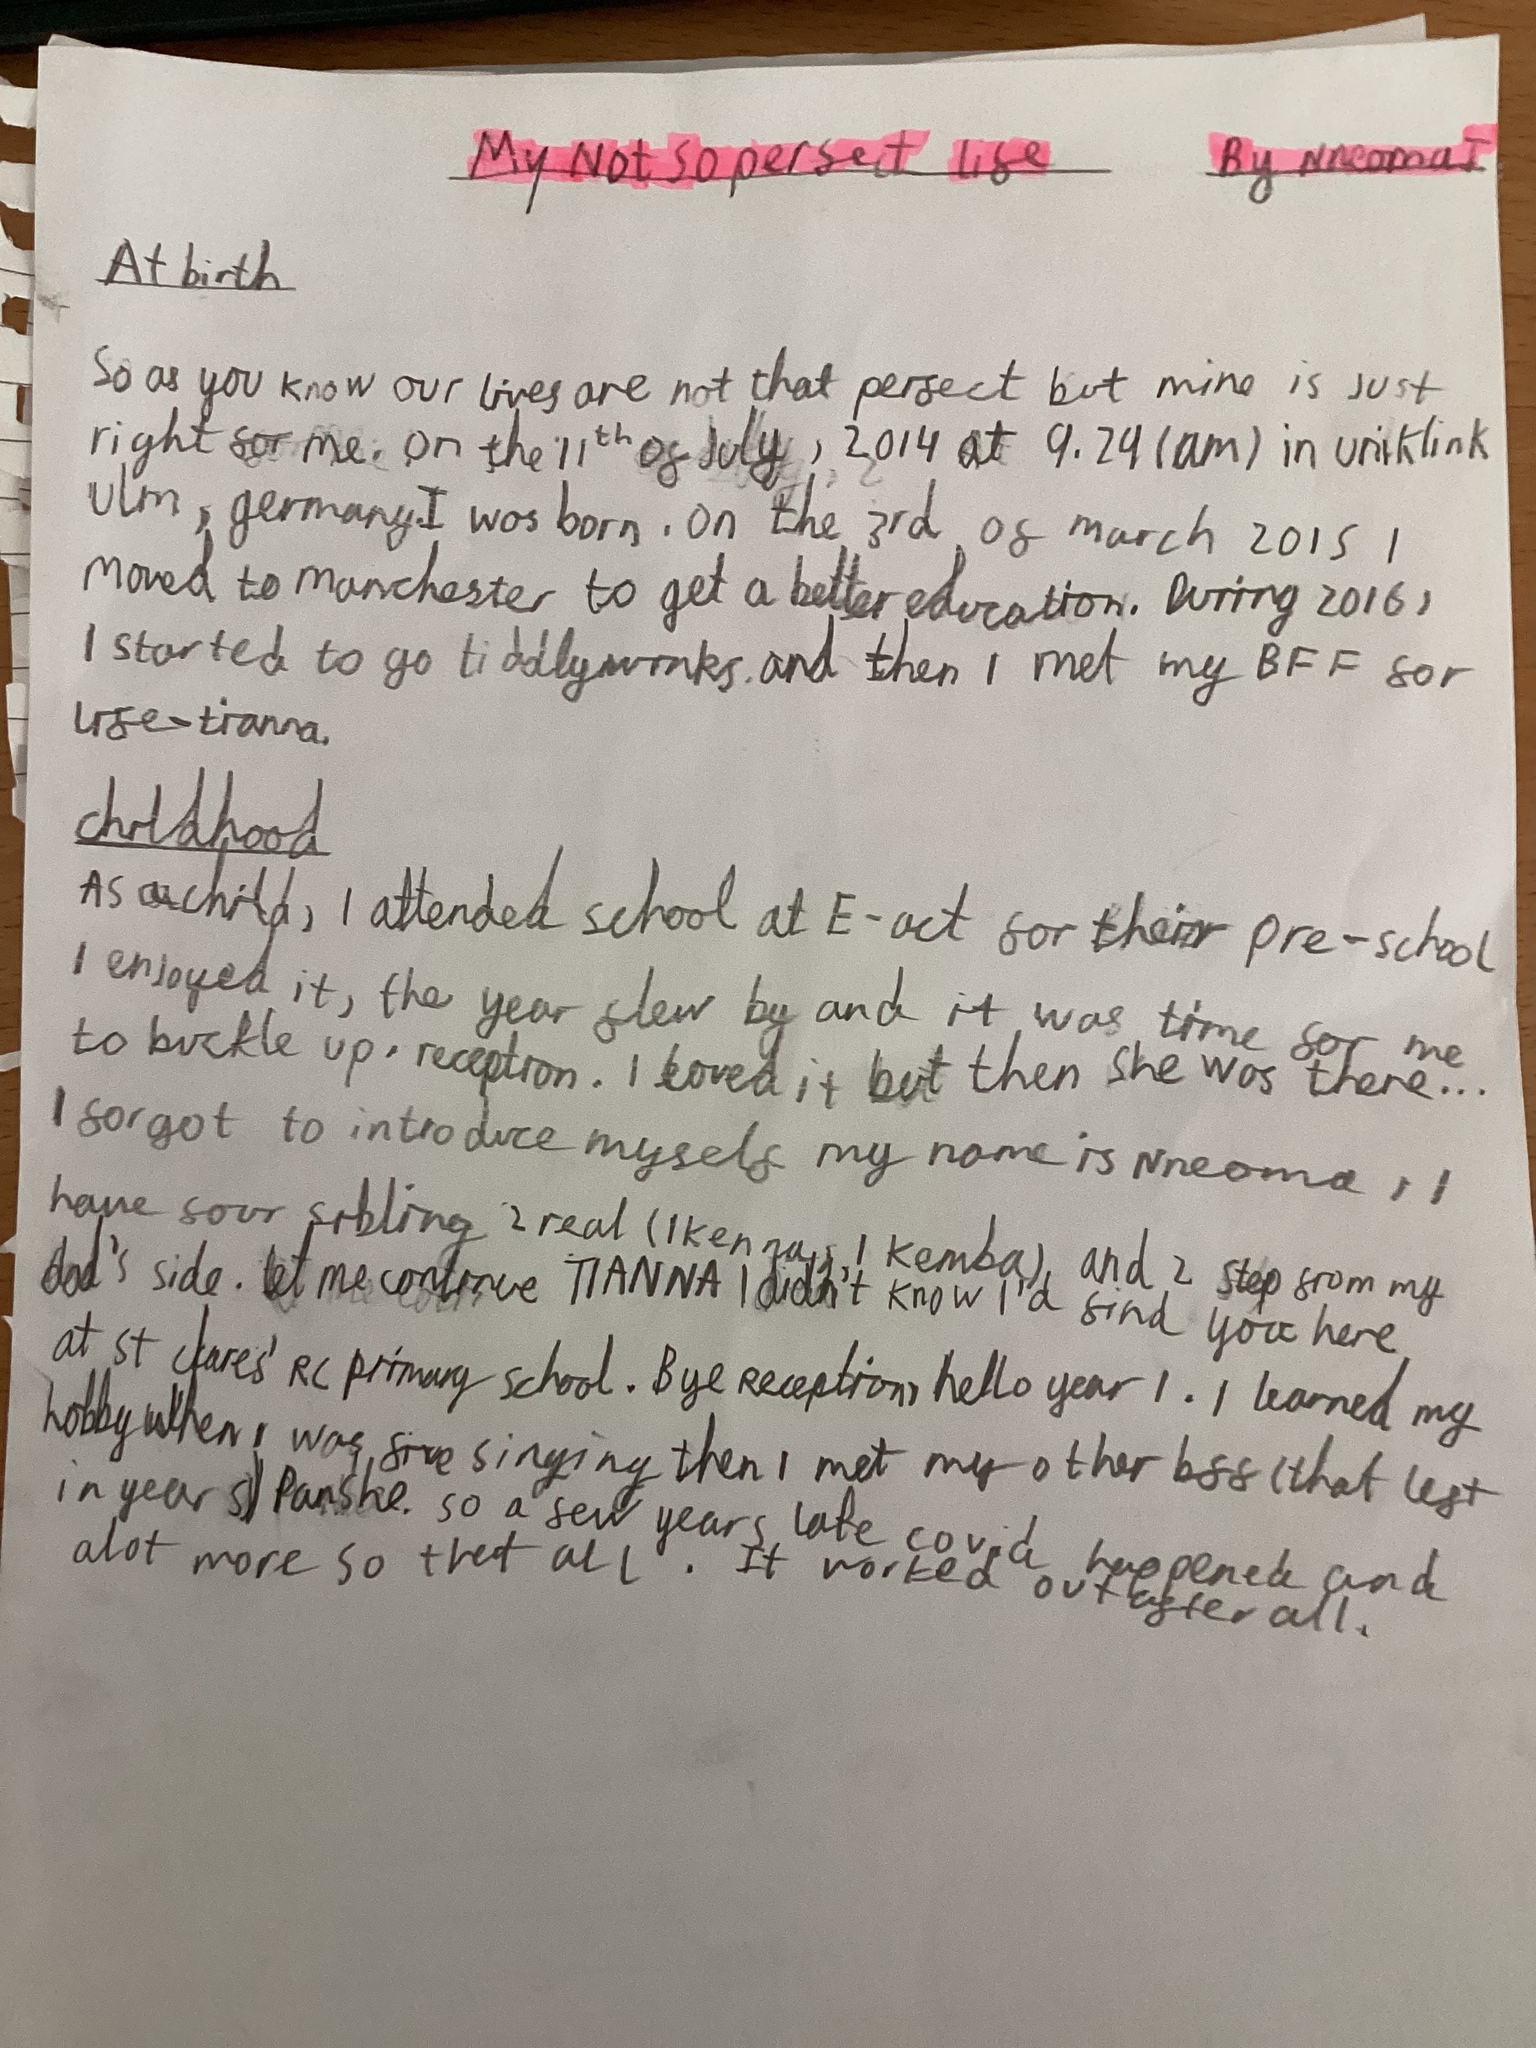 My Not so perfect life By Nneoma I
At birth
So as you know our lives are not that perfect but mine is Just
right for me. On the 11th of July, 2014 at 9.29 (am) in uniklink
Ulm, germany. I was born. On the 3rd of march 2015 I
moved to manchester to get a better education. During 2016,
I started to go tiddlywinks. and then I met my BFF for
life-tianna.
childhood
As a child, I attended school at E-act for their pre-school
I enjoyed it, the year flew by and it was time for me
to buckle up. reception. I loved it but then she was there...
I forgot to introduce myself my name is Nneoma, I
have four sibling 2 real (Ikenna, Ikemba) and 2 step from my
dad's side. let me continue TIANNA I didn't know I'd find you here
at st clares' RC primary school. Bye reception, hello year 1. I learned my
hobby when I was five singing then I met my other bff (that left
in year 5) Panshe. so a few years late covid happened and
alot more so thet all. It worked out after all.